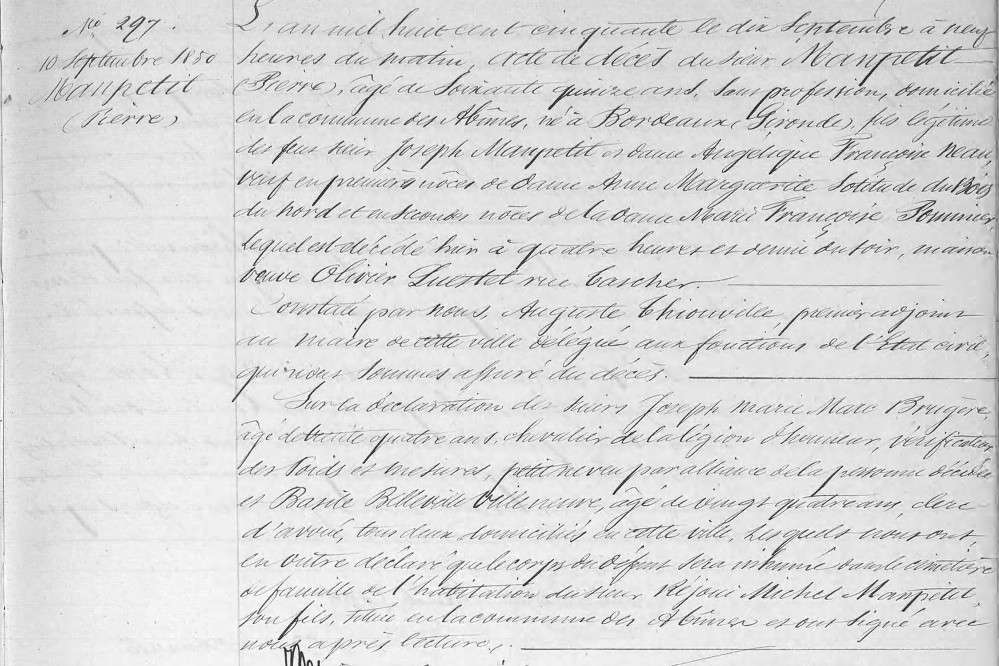 No 297.
10 Septembre 1850
Manpetit
(Pierre)
L'an mil huit cent cinquante le dix Septembre à neuf
heures du matin, acte de décès du sieur Manpetit
(Pierre), âgé de Soixante quinze ans, sans profession, domicilié
en la commune des Abîmes, né à Bordeaux (Gironde), fils légitime
des feus sieur Joseph Manpetit et dame Angelique Françoise Neau,
veuf en premières nôces de dame Anne Margarite Solitude du Bois
du nord et en secondes nôces de la dame Marie Françoise Pommier,
lequel est décédé hier à quatre heures et demie du soir, maison
veuve Olivier rue Tascher.
Constaté par nous, Auguste Thionville, premier adjoint
au maire de cette ville délégué aux fonctions de l'Etat civil,
qui nous sommes assuré du décès.
Sur la déclaration des sieurs Joseph Marie Marc Brugère,
âgé de trente quatre ans, chevalier de la légion d'honneur, vérificateur
des Poids et mesures, petit neveu par alliance de la personne décédée
et Basile Belleville Villeneuve, âgé de vingt quatre ans, clerc
d'avoué, tous deux domiciliés en cette ville. Lesquels nous ont
en outre déclaré que le corps du défunt sera inhumé dans le cimetière
de famille de l'habitation du sieur Réjoui Michel Manpetit,
son fils, située en la commune des Abîmes et ont signé avec
nous après lecture.